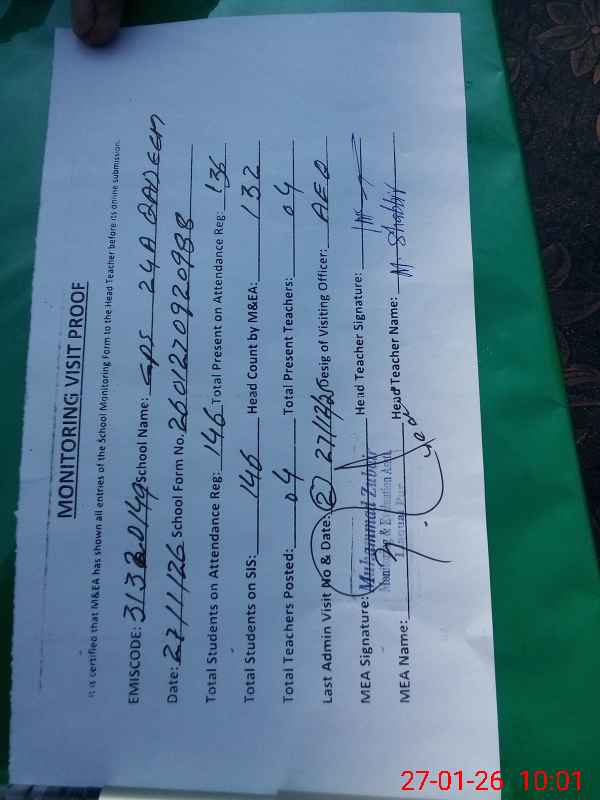 MONITORING VISIT PROOF
It is certified that M&EA has shown all entries of the School Monitoring Form to the Head Teacher before its online submission.
EMISCODE: 31320149 School Name: GPS 24A QADEEM
Date: 27/1/26 School Form No. 2601270920988
Total Students on Attendance Reg: 146 Total Present on Attendance Reg: 136
Total Students on SIS: 146 Head Count by M&EA: 132
Total Teachers Posted: 04 Total Present Teachers: 04
Last Admin Visit No & Date: (2) Desig of Visiting Officer: AEO
MEA Signature: Muhammad Zubair Head Teacher Signature:
Monitoring & Evaluation Asstt.
MEA Name: Head Teacher Name: M. Shabbir
27-01-26 10:01